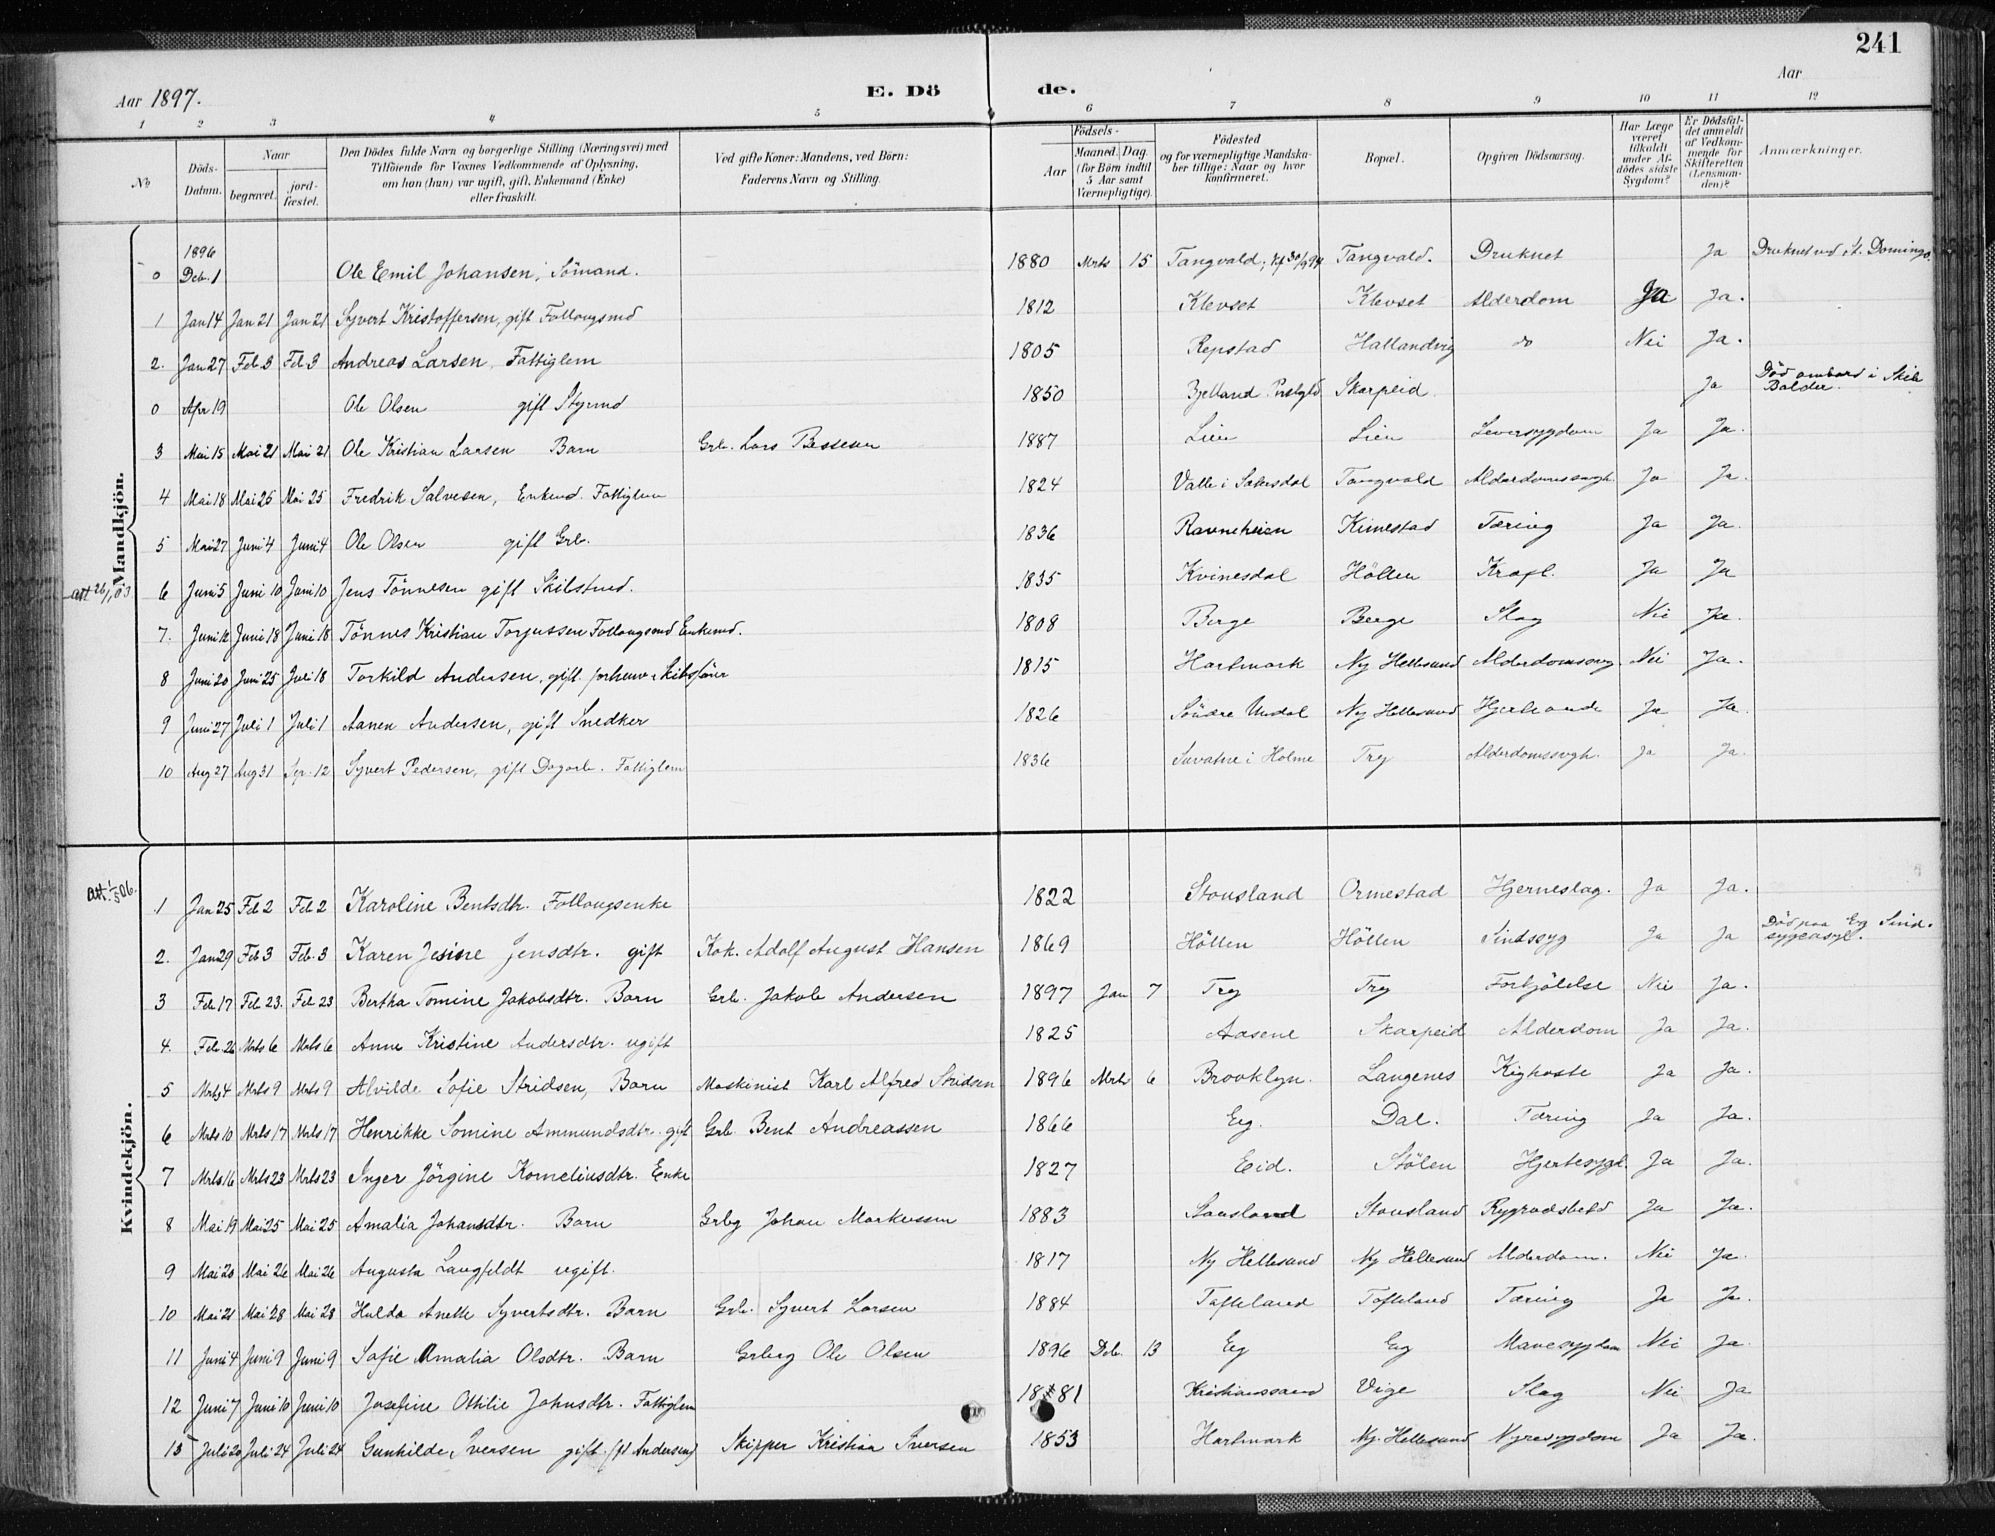 241
Aar 1897.
E. Dö de.
Aar
1 2 3 4 5 6 7 8 9 10 11 12
No
Döds-Datum.
Naar
begravet.
jord-fæstet.
Den Dödes fulde Navn og borgerlige Stilling (Næringsvei) med
Tilföiende for Voxnes Vedkommende af Oplysning,
om han (hun) var ugift, gift, Enkemand (Enke)
eller fraskilt.
Ved gifte Koner: Mandens, ved Börn:
Faderens Navn og Stilling.
Födsels-
Aar
Maaned. Dag.
(for Börn indtil
5 Aar samt
Værnepligtige).
Födested
og for værnepligtige Mandska-
ber tillige: Naar og hvor
konfirmeret.
Bopæl.
Opgiven Dödsaarsag.
Har Læge
været
tilkaldt
under Af-
dödes sidste
Sygdom?
Er Dödsfal-
det anmeldt
af Vedkom-
mende for
Skifteretten
(Lensman-
den)?
Anmærkninger.
Mandkjön.
1896
0 Deb. 1 Ole Emil Johansen, Sömand. 1880 Mrts 15 Tangvald, Kf 30/9 94 Tangvald. Druknet Ja Druknet ved St. Domingo.
1 Jan 14 Jan 21 Jan 21 Syvert Kristoffersen, gift Follougsmd 1812 Klevset Klevset Alderdom Ja Ja.
2. Jan 27 Feb 3 Feb 3 Andreas Larsen, Fattiglem 1805 Repstad Hallandvig do Nei Ja.
0 Apr 19 Ole Olsen gift Styrmd 1850 Bjelland Prstgld Skarpeid. Ja Död ombord i Skib
Balder.
3 Mai 15 Mai 21 Mai 21 Ole Kristian Larsen Barn Grb. Lars Bessesen 1887 Lien Lien Leversygdom Ja Ja.
4 Mai 18 Mai 25 Mai 25 Fredrik Salvesen, Enkemd. Fattiglem 1824 Valle i Sætersdal Tangvald Alderdomssvgh. Ja Ja.
5 Mai 27 Juni 4 Juni 4 Ole Olsen gift Grb. 1836 Ravneheien Kimestad Tæring Ja Ja.
att 26/1 03
6 Juni 5 Juni 10 Juni 10 Jens Tönnesen gift Skibstmd. 1835 Kvinesdal Hölten Kræft. Ja Ja
7. Juni 12 Juni 18 Juni 18 Tönnes Kristian Torjussen Follougsmd Enkemd. 1808 Berge Berge Slag Nei Ja.
8 Juni 20 Juni 25 Juli 18 Torkild Andersen, gift forhenv. skibsförer 1815 Hartmark Ny Hellesund Alderdomssvg Nei Ja.
9 Juni 27 Juli 1 Juli 1 Aanen Andersen, gift Snedker 1826 Söndre Undal Ny Hellesund Ja Ja.
10 Aug 27 Aug 31 Sep. 12 Syvert Pedersen, gift Dagarb. Fattiglem 1836 i Holme Try Alderdomssvgh. Ja Ja.
Kvindekjön.
att. 1/5 06.
1 Jan 25 Feb 2 Feb 2 Karoline Bentsdtr. Follougsenke 1822 Stousland Ormestad Hjerneslag. Ja Ja.
2. Jan 29 Feb 3 Feb. 3 Karen Jesine Jensdtr. gift Kok. Adolf August Hansen 1869 Hölten Hölten Sindssyg Ja Ja Död paa Eg Sind-
sygeasyl.
3 Feb 17 Feb 23. Feb 23 Bertha Tomine Jakobsdtr. Barn Grb. Jakob Andersen 1897 Jan 7 Try Try Forkjölelse Nei Ja.
4. Feb. 26 Mrts 6 Mrts 6 Anne Kristine Andersdtr. ugift 1825 Aasene Skarpeid Alderdom Ja Ja.
5 Mrts 4 Mrts 9 Mrts 9 Alvilde Sofie Stridsen, Barn Maskinist Karl Alfred Stridsen 1896 Mrts 6 Brooklyn. Langenes Kighoste Ja Ja.
6 Mrts 10 Mrts 17 Mrts 17 Henrikke Tomine Ammundsdtr. gift Grb. Bent Andreassen 1866 Eg. Dal. Tæring Ja Ja.
7 Mrts 16 Mrts 23 Mrts 23 Inger Jörgine Korneliusdtr. Enke 1827 Eid. Stölen Hjertesygd. Ja Ja.
8 Mai 19 Mai 25 Mai 25 Amalia Johansdtr. Barn Grbg Johan Markussen 1883 Stousland Stousland Rygradsbetd Ja Ja.
9 Mai 20 Mai 26 Mai 26 Augusta Langfeldt ugift. 1817 Ny Hellesund Ny Hellesund Alderdom. Nei Ja.
10 Mai 21 Mai 28 Mai 28 Hulda Anette Syvertsdtr. Barn Grb. Syvert Larsen 1884 Tofteland Tofteland Tæring Ja Ja.
11 Juni 4 Juni 9 Juni 9 Sofie Amalia Olsdtr. Barn Grbrg Ole Olsen 1896 Deb. 13 Eg Eg Mavesygdom Nei Ja.
12 Juni 7 Juni 10 Juni 10 Josefine Otthilie Johnsdtr. Fattiglem 1881 Kristianssand Vige Slag Nei Ja
13 Juli 20 Juli 24 Juli 24 Gunhilde Iversen gift. (fd Andersen) Skipper Kristian Iversen 1853 Hartmark Ny. Hellesund Nyresygdom Ja Ja.